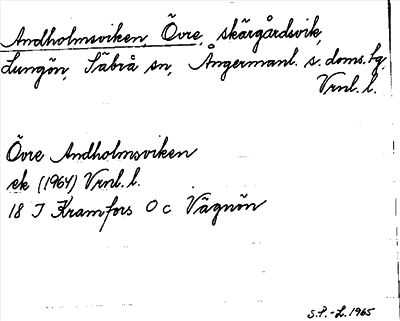 Andholmsviken, Övre, skärgårdsvik,
Lungön, Säbrå sn, Ångermanl. s. doms. tg,
Vrnl. l.
Övre Andholmsviken
ek (1964) Vrnl. l.
18 I Kramfors O c Vägnön
S.P.-L. 1965